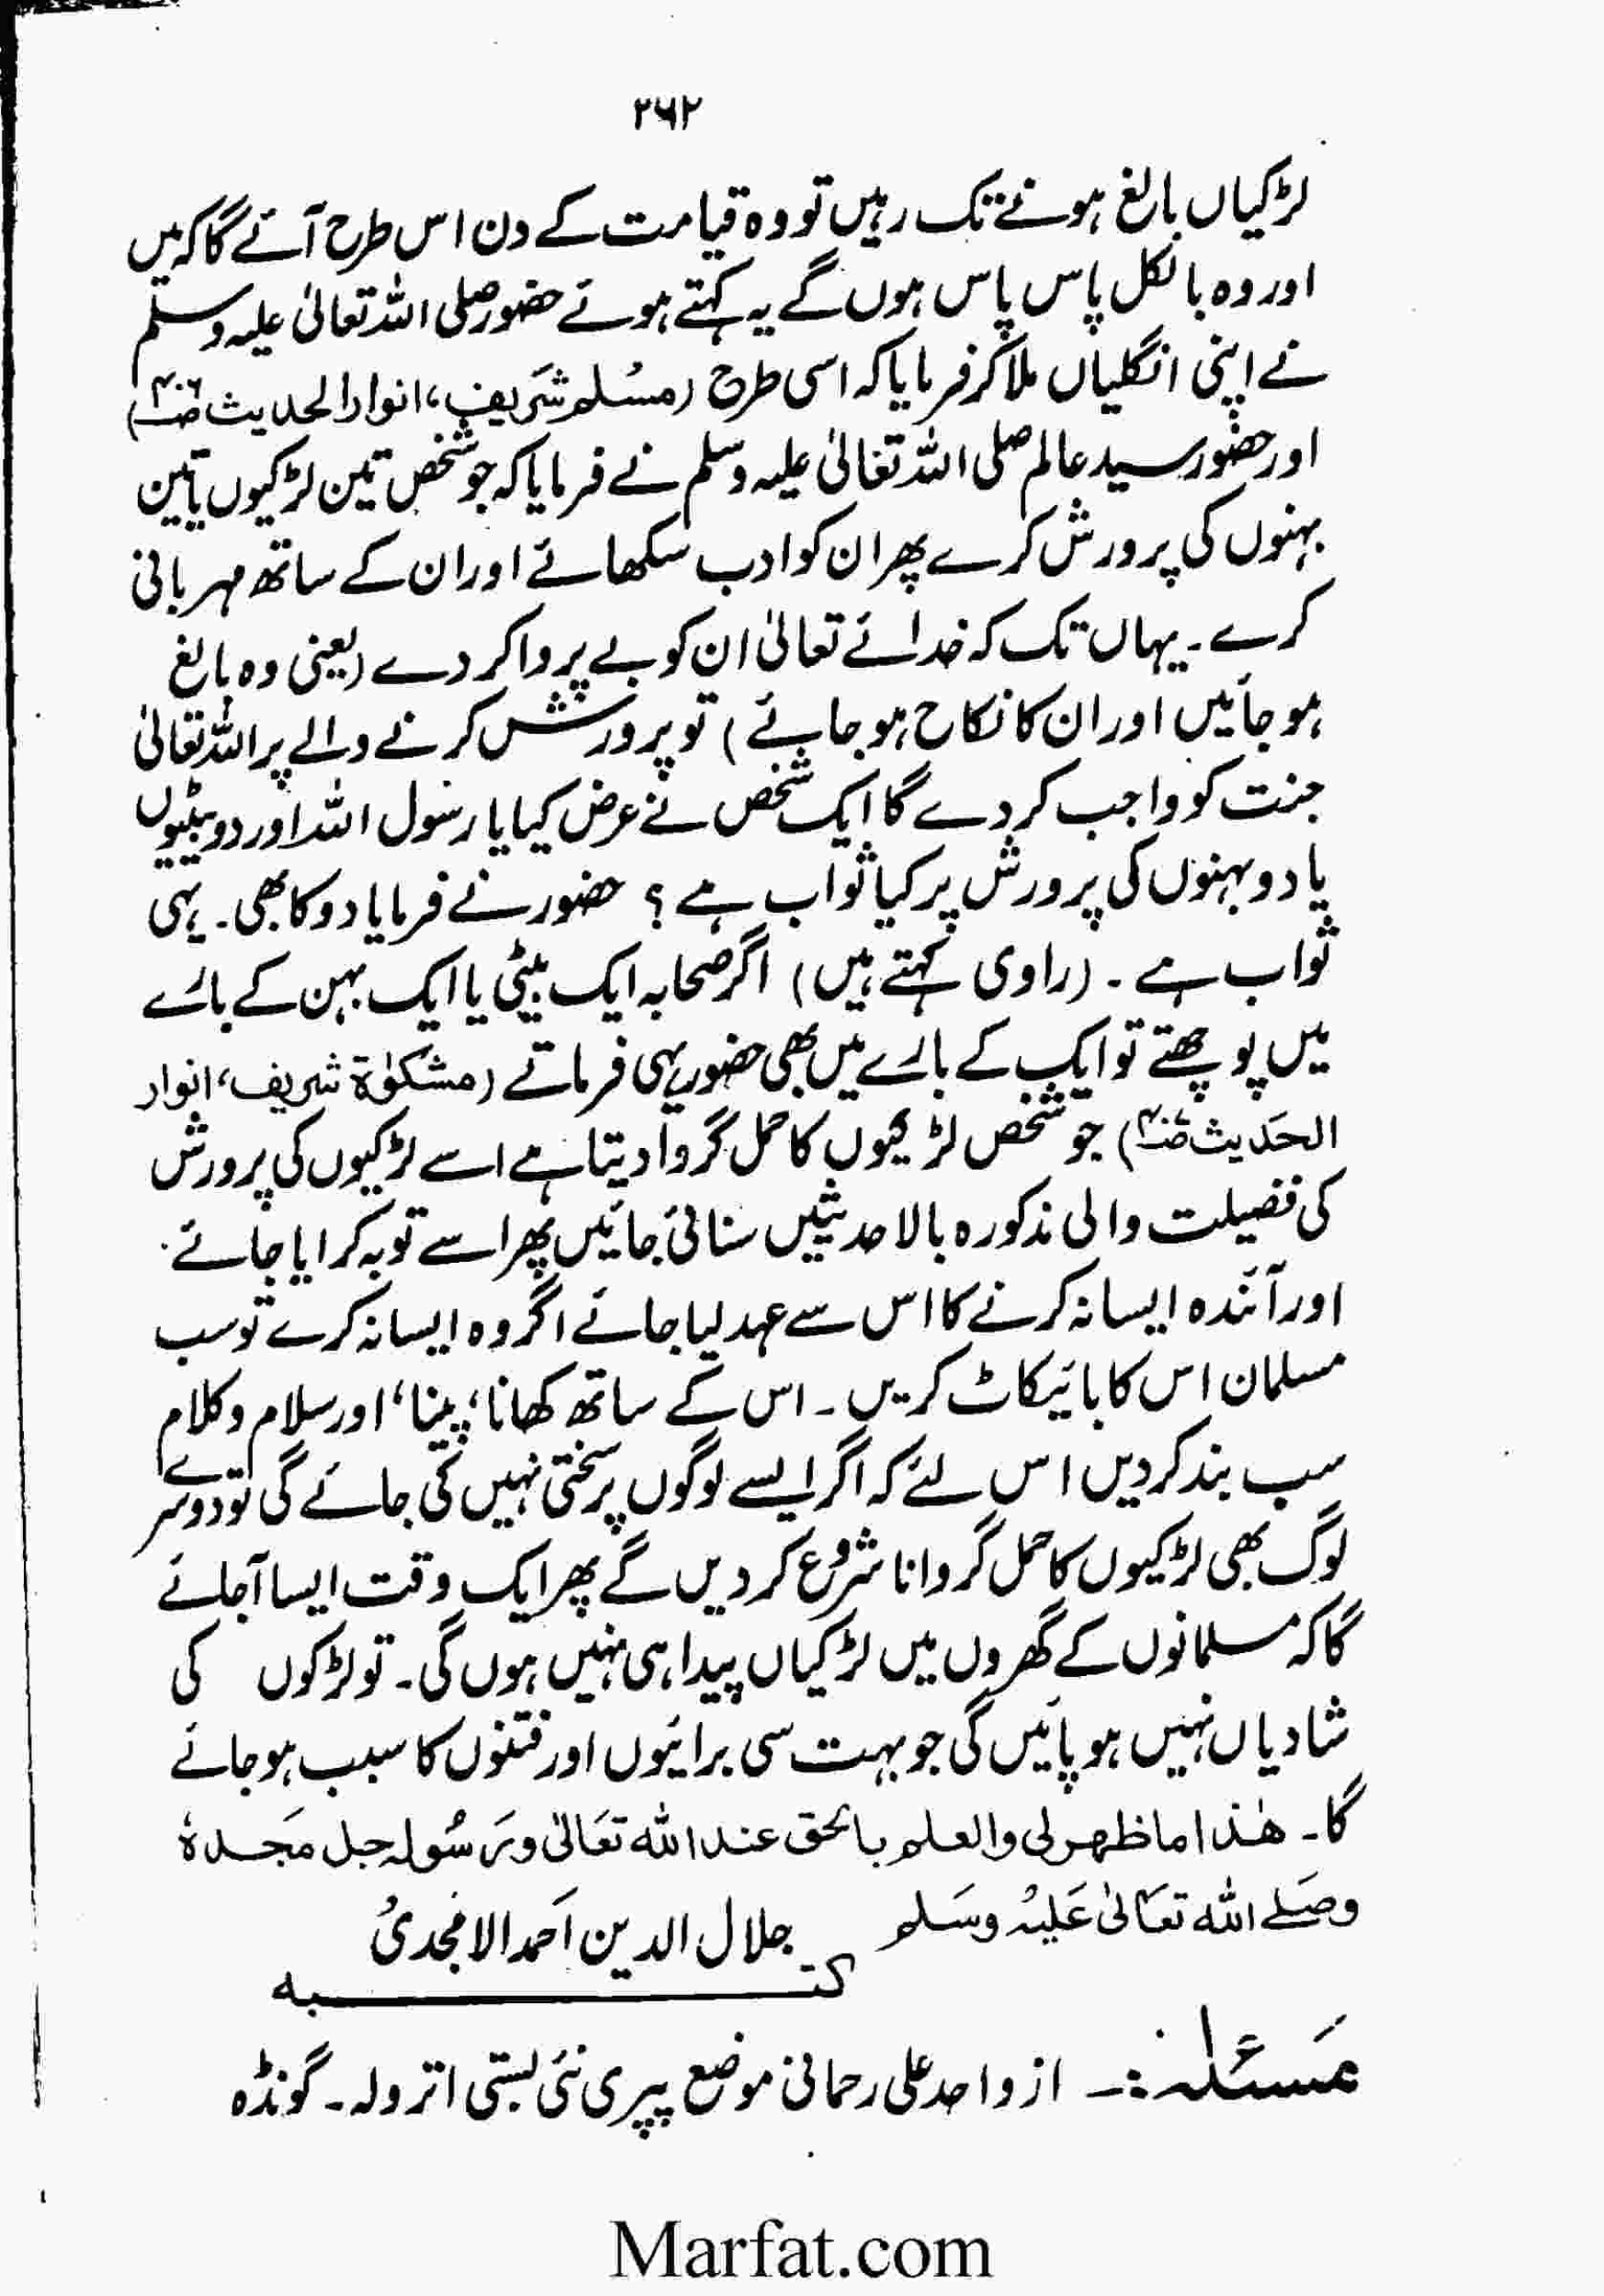 ۲۶۲
لڑکیاں بالغ ہونے تک رہیں تو وہ قیامت کے دن اس طرح آئے گا کہ میں
اور وہ بالکل پاس پاس ہوں گے یہ کہتے ہوئے حضور صلی اللہ تعالیٰ علیہ وسلم
نے اپنی انگلیاں ملا کر فرمایا کہ اسی طرح (مسلم شریف، انوار الحدیث ص۴۰۶)
اور حضور سید عالم صلی اللہ تعالیٰ علیہ وسلم نے فرمایا کہ جو شخص تین لڑکیوں یا تین
بہنوں کی پرورش کرے پھر ان کو ادب سکھائے اور ان کے ساتھ مہربانی
کرے۔ یہاں تک کہ خدائے تعالیٰ ان کو بے پروا کر دے (یعنی وہ بالغ
ہو جائیں اور ان کا نکاح ہو جائے) تو پرورش کرنے والے پر اللہ تعالیٰ
جنت کو واجب کر دے گا ایک شخص نے عرض کیا یا رسول اللہ اور دو بیٹیوں
یا دو بہنوں کی پرورش پر کیا ثواب ہے؟ حضور نے فرمایا دو کا بھی۔ یہی
ثواب ہے۔ (راوی کہتے ہیں) اگر صحابہ ایک بیٹی یا ایک بہن کے بارے
میں پوچھتے تو ایک کے بارے میں بھی حضور یہی فرماتے (مشکوٰۃ شریف، انوار
الحدیث) جو شخص لڑکیوں کا حمل گروا دیتا ہے اسے لڑکیوں کی پرورش
کی فضیلت والی مذکورہ بالا حدیثیں سنائی جائیں پھر اسے توبہ کرایا جائے۔
اور آئندہ ایسا نہ کرنے کا اس سے عہد لیا جائے اگر وہ ایسا نہ کرے تو سب
مسلمان اس کا بائیکاٹ کریں۔ اس کے ساتھ کھانا، پینا، اور سلام و کلام
سب بند کر دیں اس لئے کہ اگر ایسے لوگوں پر سختی نہیں کی جائے گی تو دوسرے
لوگ بھی لڑکیوں کا حمل گروانا شروع کر دیں گے پھر ایک وقت ایسا آجائے
گا کہ مسلمانوں کے گھروں میں لڑکیاں پیدا ہی نہیں ہوں گی۔ تو لڑکوں کی
شادیاں نہیں ہو پائیں گی جو بہت سی برائیوں اور فتنوں کا سبب ہو جائے
گا۔ ھٰذا ما ظھر لی والعلم بالحق عند اللہ تعالیٰ ورسولہ جل مجدہٗ
وصلے اللہ تعالیٰ علیہ وسلم
جلال الدین احمد الامجدی
کتبہ
مسئلہ:۔ از واحد علی رحمانی موضع پپری نئی بستی اترولہ۔ گونڈہ
Marfat.com